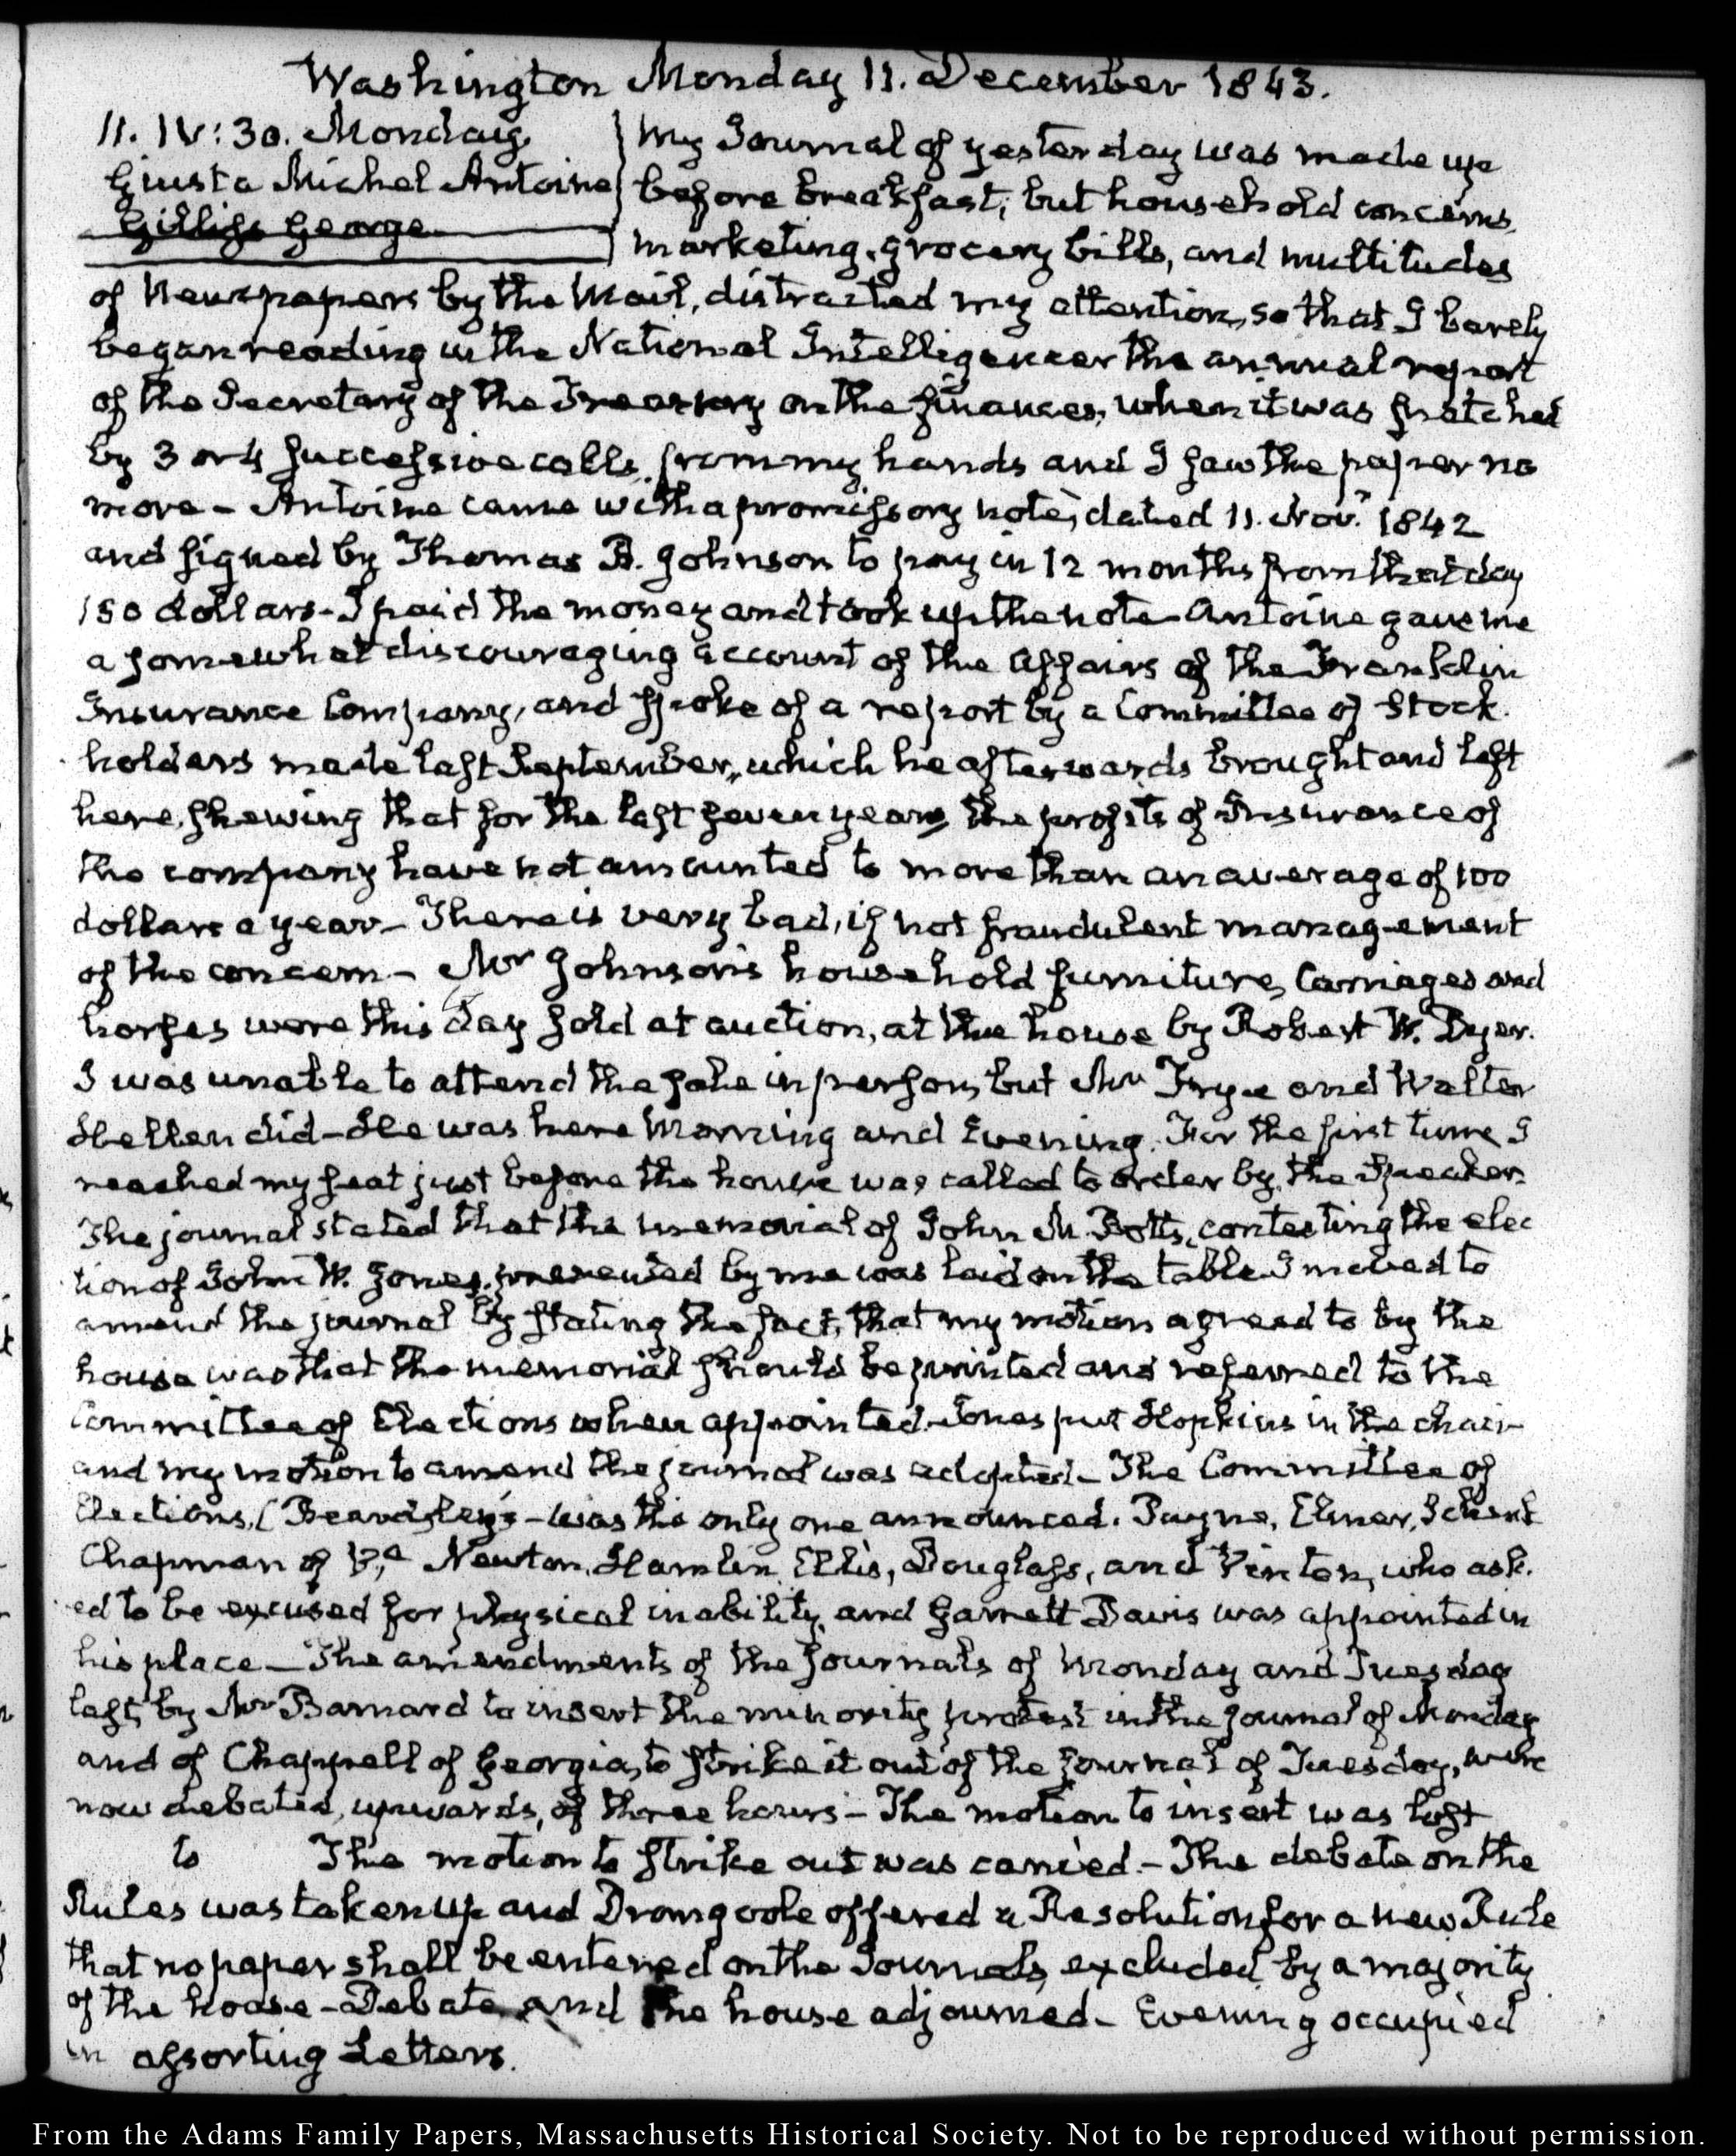 Washington Monday 11. December 1843.
11. IV: 30. Monday
Giusta Michel Antoine
Gilliss George
My Journal of yesterday was made up
before breakfast, but household concerns,
marketing, grocery bills, and multitudes
of Newspapers by the Mail, distracted my attention, so that I barely
began reading in the National Intelligencer the annual report
of the Secretary of the Treasury on the finances, when it was snatched
by 3 or 4 successive calls from my hands and I saw the paper no
more – Antoine came with a promissory note, dated 11. Novr. 1842
and signed by Thomas B. Johnson to pay in 12 months from that day
150 dollars – I paid the money and took up the note – Antoine gave me
a somewhat discouraging account of the affairs of the Franklin
Insurance Company, and spoke of a report by a Committee of Stock-
holders made last September, which he afterwards brought and left
here, shewing that for the last seven years the profits of Insurance of
the company have not amounted to more than an average of 100
dollars a year – There is very bad, if not fraudulent management
of the concern – Mr Johnson's household furniture, Carriages and
horses were this day sold at auction, at the house by Robert W. Dyer.
I was unable to attend the sale in person, but Mr Frye and Walter
Hellen did – He was here Morning and Evening. For the first time I
reached my seat just before the house was called to order by the Speaker.
The journal stated that the memorial of John M. Botts, contesting the elec
tion of John W. Jones, presented by me was laid on the table I moved to
amend the journal by stating the fact, that my motion agreed to by the
house was that the memorial should be printed and referred to the
Committee of Elections when appointed. Jones put Hopkins in the chair
and my motion to amend the journal was adopted – The Committee of
Elections, (Beardsley's – was the only one announced. Payne, Elmer, Schenk
Chapman of Va Newton, Hamlin, Ellis, Douglass, and Vinton, who ask-
ed to be excused for physical inability, and Garrett Davis was appointed in
his place – The amendments of the Journals of Monday and Tuesday
last, by Mr Barnard to insert the minority protest in the Journal of Monday
and of Chappell of Georgia, to strike it out of the Journal of Tuesday, were
now debated, upwards, of three hours – The motion to insert was lost
to The motion to strike out was carried – The debate on the
Rules was taken up and Dromgoole offered a Resolution for a new Rule
that no paper shall be entered on the Journals, excluded by a majority
of the house – Debate and the house adjourned – Evening occupied
in assorting Letters.
From the Adams Family Papers, Massachusetts Historical Society. Not to be reproduced without permission.